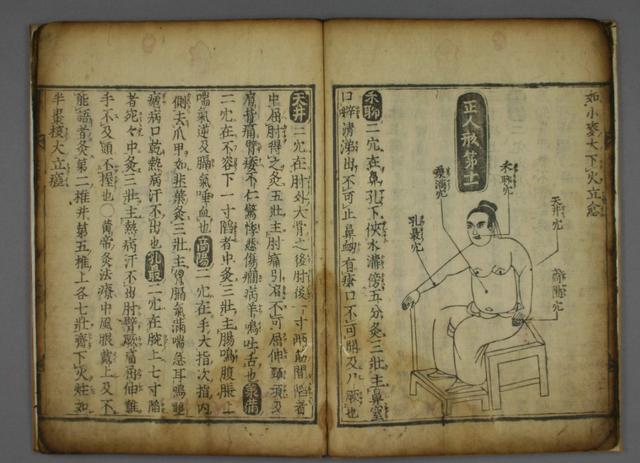 如小麥大下火立愈
正人形第十一
天井穴
商陽穴
禾聊穴
承滿穴
孔最穴
禾聊二穴在鼻孔下俠水溝傍五分灸三壯主鼻窒
口噼清洟出不可止鼻衄有瘡口不可開及尸厥也
天井二穴在肘外大骨之後肘後一寸兩筋間陷者
中屈肘得之灸五壯主肘痛引肩不可屈伸頸項及
肩背痛臂痿不仁驚悸悲傷癇病羊鳴吐舌也承滿
二穴在不容下一寸陷者中灸三壯主腸鳴腹脹上
喘氣逆及膈氣唾血也商陽二穴在手大指次指內
側去爪甲如韭葉灸三壯主胷膈氣滿喘急耳鳴聾
瘧病口乾熱病汗不出也孔最二穴在腕上七寸陷
者宛々中灸三壯主熱病汗不出肘臂厥痛屈伸難
手不及頭不握也○黃帝灸法療中風眼戴上及不
能語者灸第二椎并第五椎上各七壯齊下火炷如
半棗核大立瘥